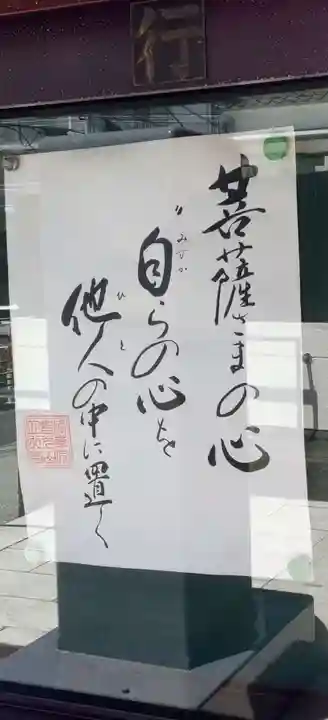 行
菩薩さまの心
〃自らの心を
みずか
他人の中に置く
ひと